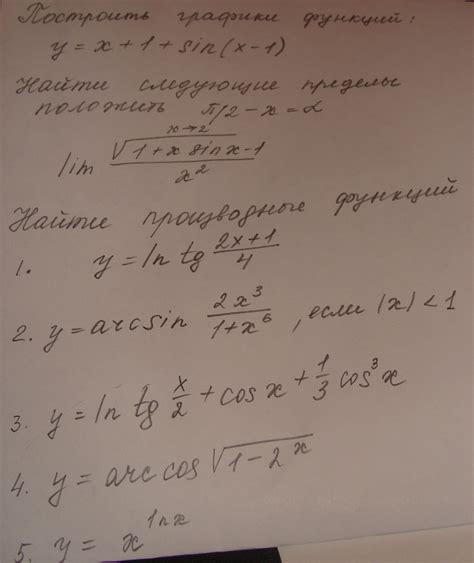 Построить графики функций:
y = x + 1 + sin(x-1)
Найти следующие пределы
положить π/2 - x = α
x→2
lim √(1 + x sinx - 1) / x²
Найти производные функций
1. y = ln tg (2x+1)/4
2. y = arcsin 2x³/(1+x⁶), если |x| < 1
3. y = ln tg x/2 + cos x + 1/3 cos³x
4. y = arccos √(1-2^x)
5. y = x^lnx